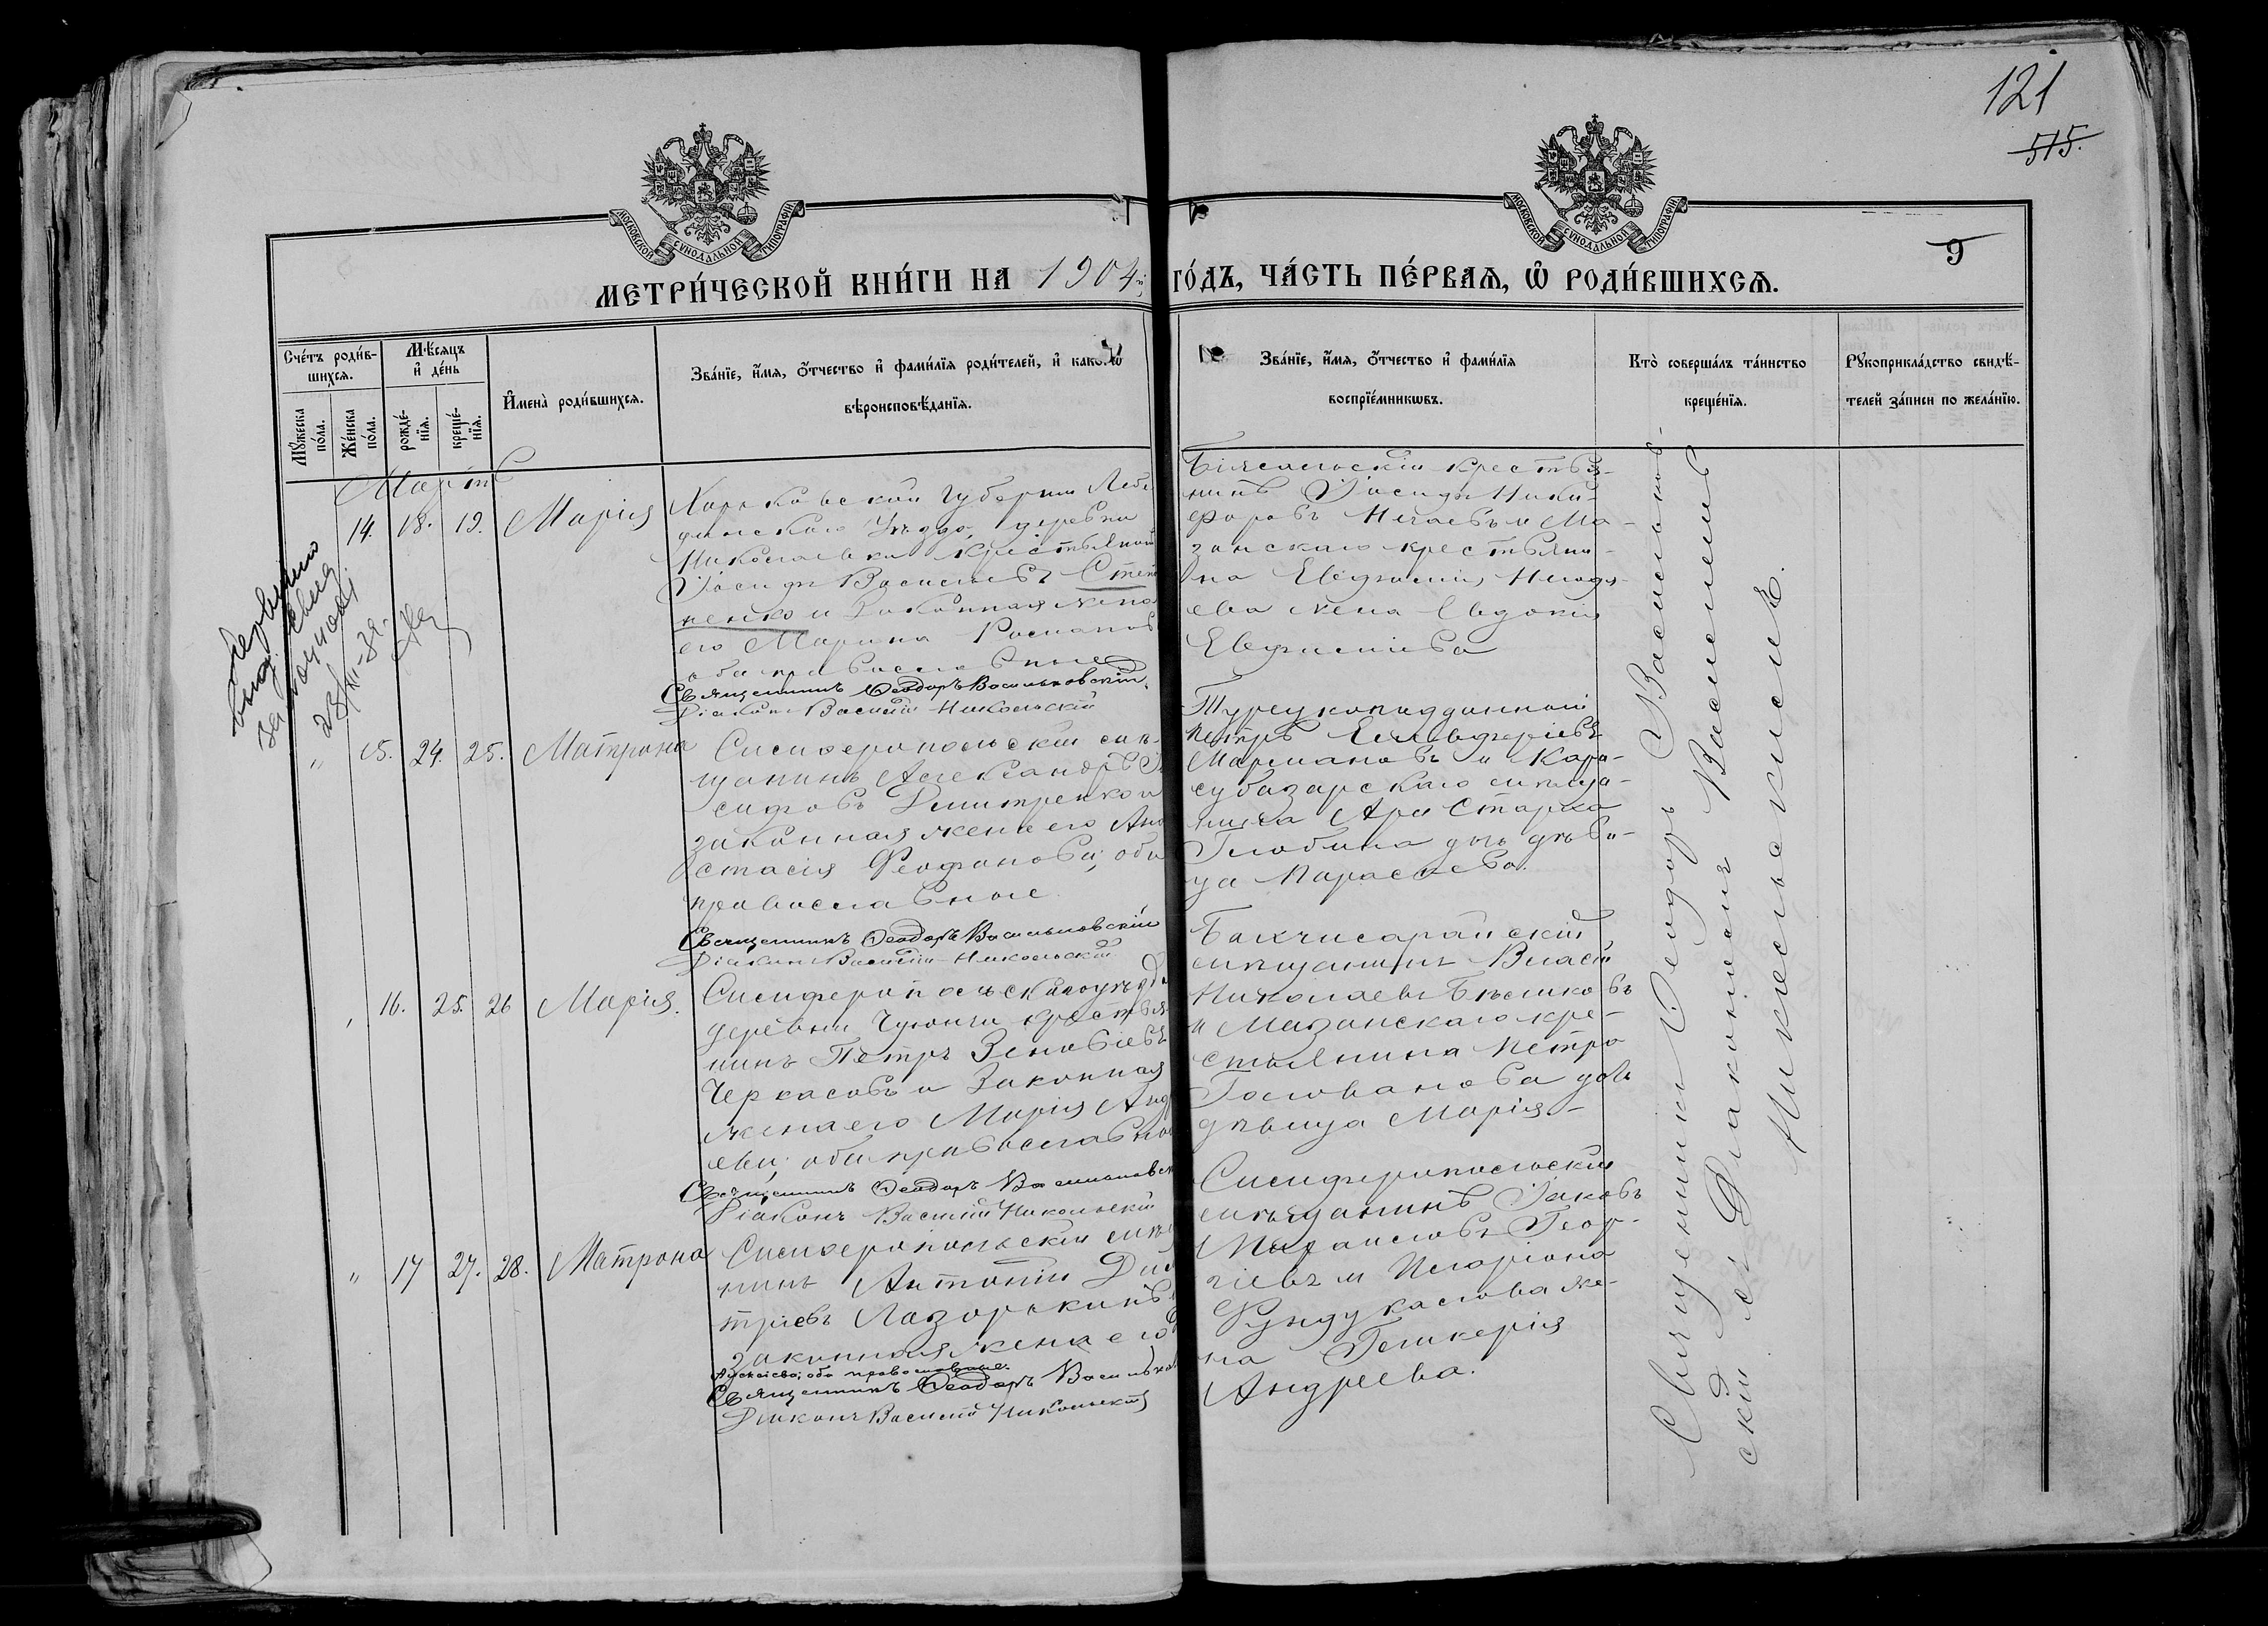 121
515.
МОСКОВСКОЙ СѴНОДАЛЬНОЙ ТИПОГРАФІИ
МОСКОВСКОЙ СѴНОДАЛЬНОЙ ТИПОГРАФІИ
9
МЕТРИ́ЧЕСКОЙ КНИ́ГИ НА 1904й
ГО́ДЪ, ЧА́СТЬ ПЕ́РВАѦ, Ѽ РОДИ́ВШИХСѦ.
Сче́тъ роди́в-
шихсѧ.
Мꙋ́жеска по́ла.
Же́нска по́ла.
Мѣ́сѧцъ и҆ де́нь
рожде́-
нїѧ.
креще́-
нїѧ.
И҆мена̀ роди́вшихсѧ.
Зва́нїе, и҆́мѧ, ѻ҆́тчество и҆ фами́лїѧ роди́телей, и҆ како́гѡ
вѣроисповѣ́данїѧ.
Зва́нїе, и҆́мѧ, ѻ҆́тчество и҆ фами́лїѧ
воспрїе́мникѡвъ.
Кто̀ соверша́лъ та́инство
креще́нїѧ.
Рꙋкоприкла́дство свидѣ́-
телей за́писи по жела́нїю.
Мартъ
14. 18. 19. Марія
Харьковской губерніи Лебе
динскаго Уѣзда, деревни
Николаевки крестьянинъ
Іосифъ Васильевъ Степа
ненко и законная жена
его Марина Романов
оба православные
Священникъ Ѳеодоръ Васильковскій
Діаконъ Василій Никольскій
крестья-
нинъ Іосифъ Ники-
форовъ Нечаевъ и Ма-
занскаго крестьяни-
на Евфимія
ева жена Евдокія
Евфиміева
" 15. 24. 25. Матрона
Симферопольскій мѣ-
щанинъ Александръ І
сифовъ Дмитренко и
законная жена его Ана
стасія Феофанова; оба
православные
Священникъ Ѳеодоръ Васильковскій
Діаконъ Василій Никольскій
Турецкоподданный
Петръ Елевферіевъ
Мармановъ и Кара-
субазарскаго мѣща-
нина
дочь дѣви-
ца Параскева.
" 16. 25. 26 Марія.
Симферопольскаго уѣзда
деревни крестья
нинъ Петръ Зеновіевъ
Черкасовъ и законная
жена его Марія Анд
еева; оба православные
Священникъ Ѳеодоръ Васильковск
Діаконъ Василій Никольскій
Бахчисарайскій
мѣщанинъ Власій
Николаевъ
и Мазанскаго кре-
стьянина Петра
Голованова дочь
дѣвица Марія
" 17 27. 28. Матрона
Симферопольскій мѣщ
нинъ Антоній Дим
тріевъ Лазоркинъ
законная жена его
оба православные.
Священникъ Ѳеодоръ Васильков
Діаконъ Василій Никольскій
Симферопольскій
мѣщанинъ Іаковъ
Геор-
гіевъ и Иларіона
Фундукалова же-
на Гликерія
Андреева.
Священникъ Ѳеодоръ Васильков-
скій съ Діакономъ Василіемъ
Никольскимъ.